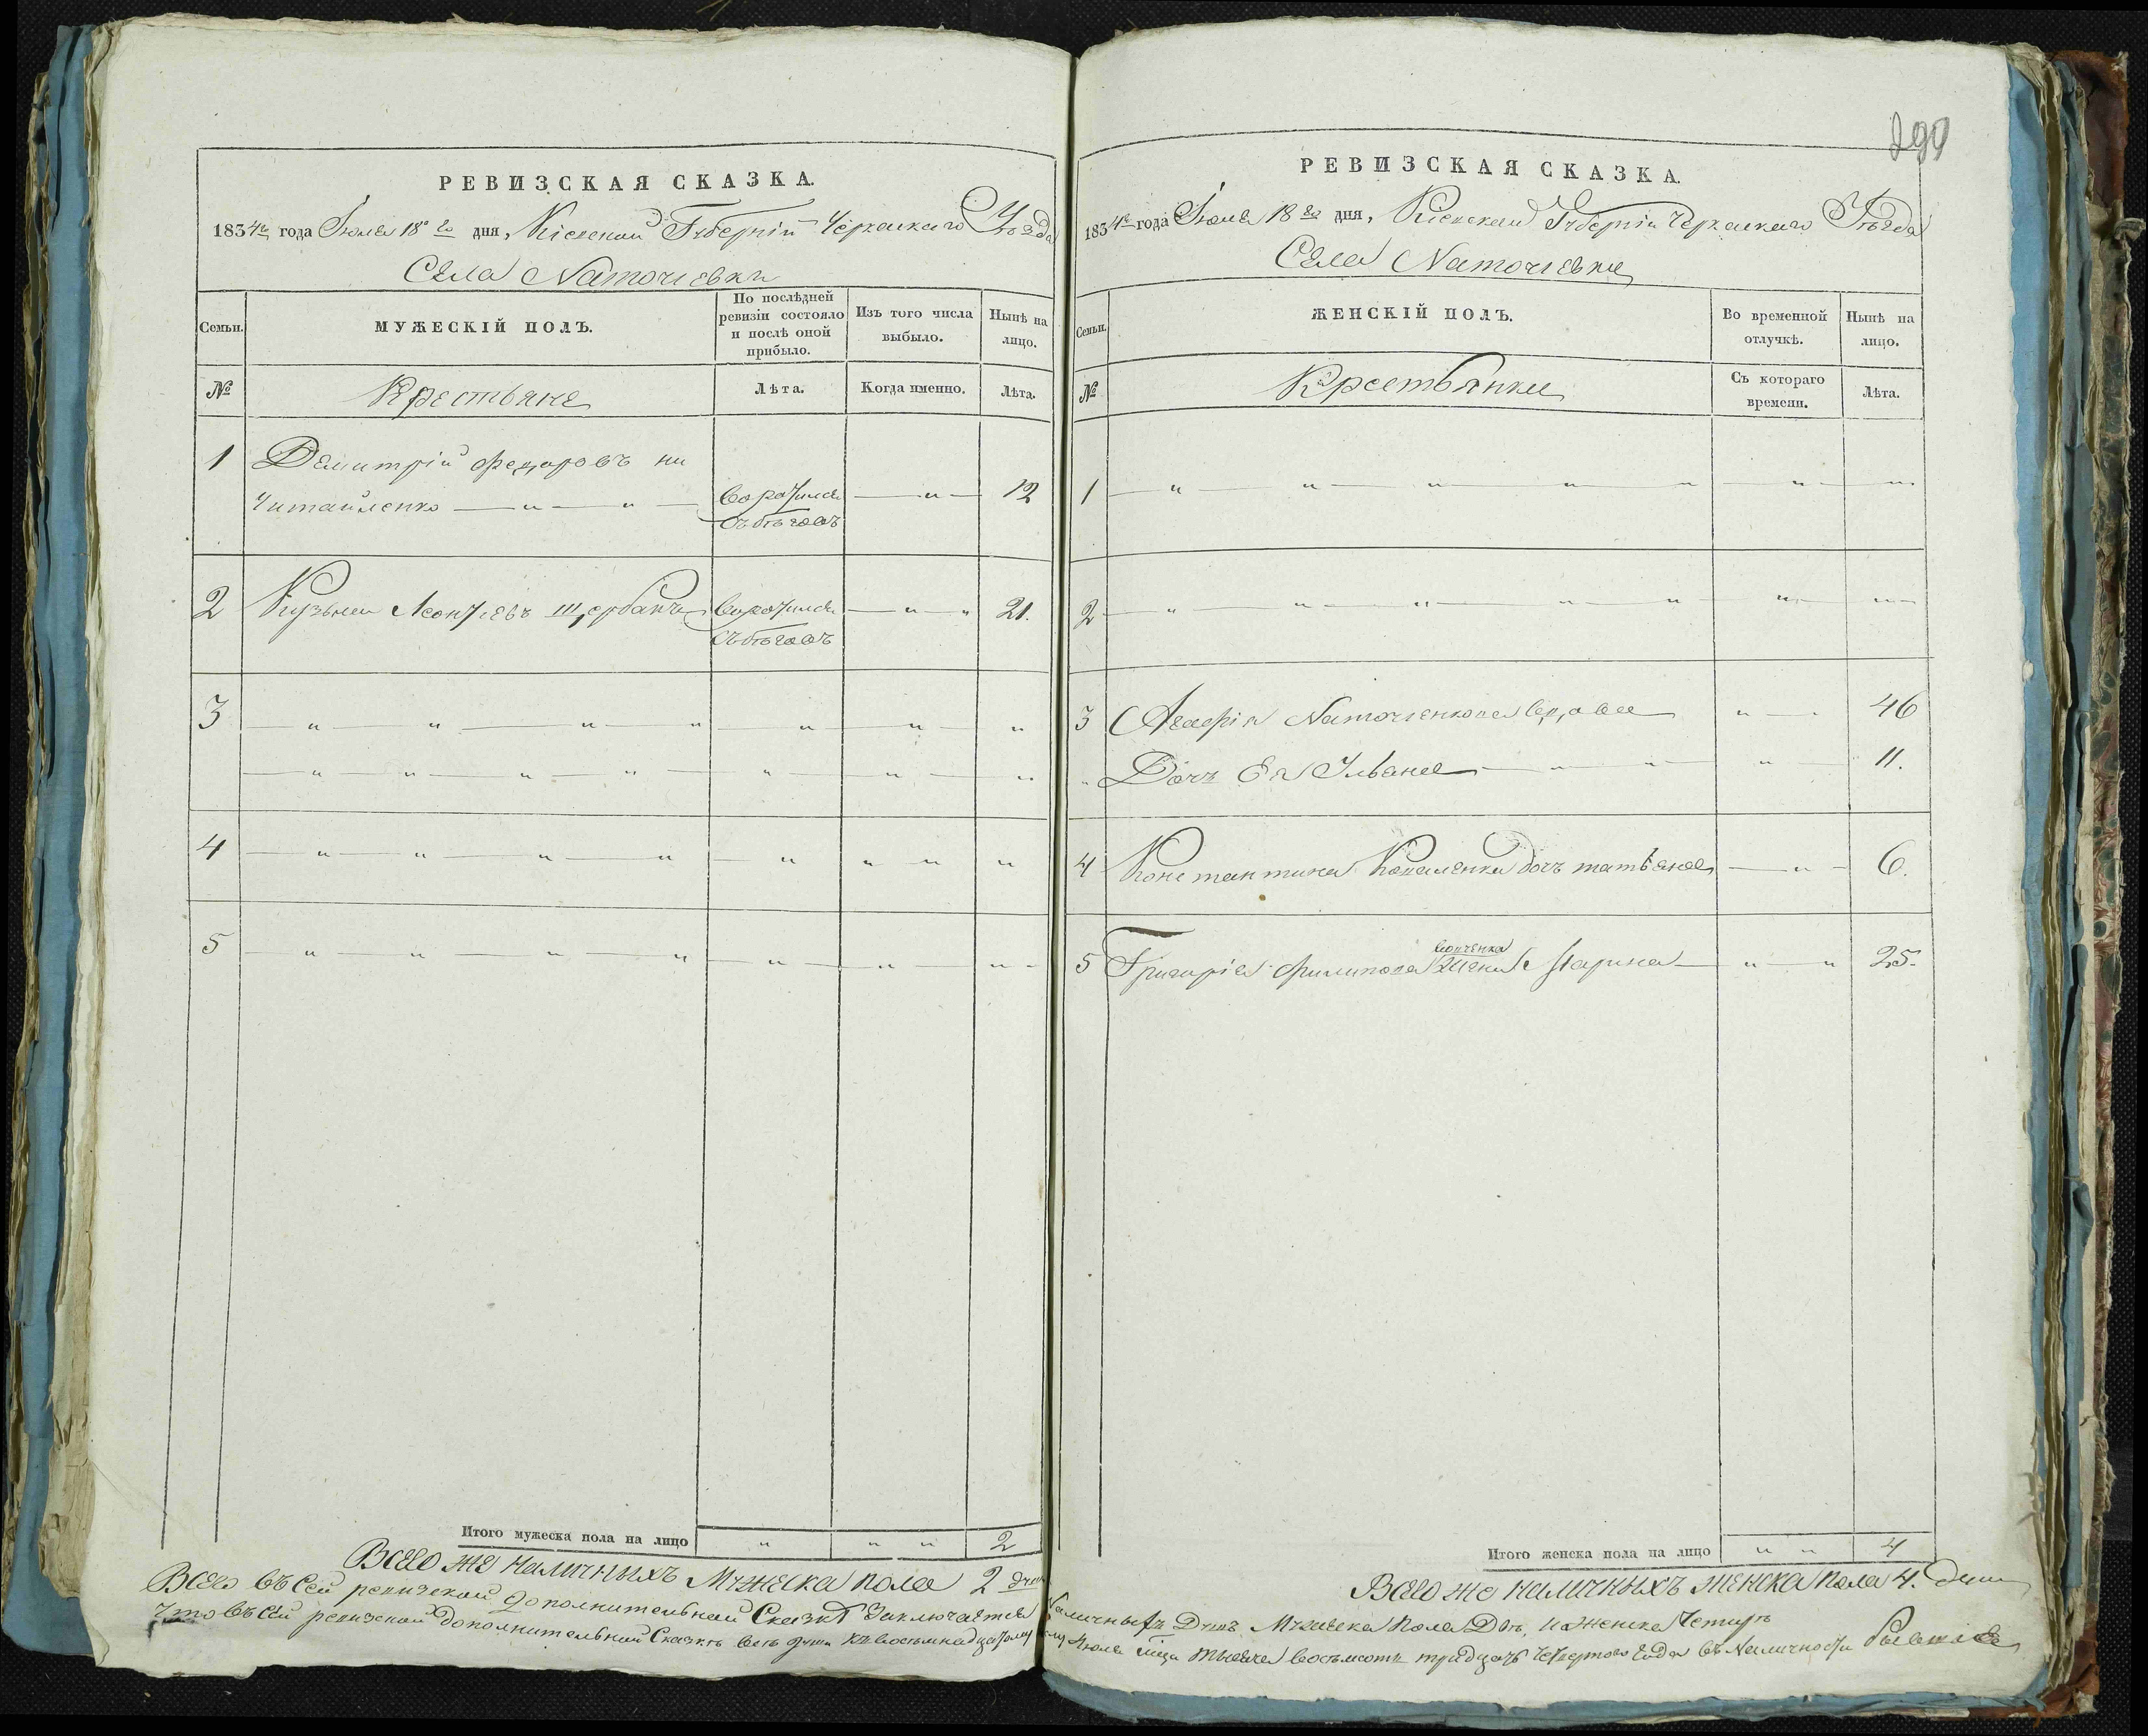 РЕВИЗСКАЯ СКАЗКА.
1834го года Июля 18го дня, Кіевской Губерніи Черкаскаго Уѣзда
Села Матоліевки
Семьи.
МУЖЕСКІЙ ПОЛЪ.
По послѣдней ревизіи состояло и послѣ оной прибыло.
Изъ того числа выбыло.
Нынѣ на лицо.
№
Крестьяне
Лѣта.
Когда именно.
Лѣта.
1 Димитрій Федоровъ ни
читайленко воротился 12
съ бѣговъ
2 Кузьма Леонтіевъ Щербакъ воротился 21.
съ бѣговъ
3
4
5
Итого мужеска пола на лицо 2
Всего же наличныхъ мужеска пола 2 души
Всего въ сей ревизской дополнительной сказкѣ заключается
что въ сей ревизской дополнительной сказкѣ всѣ души къ восьмнадцатому
290
РЕВИЗСКАЯ СКАЗКА.
1834го года Июля 18го дня, Кіевской Губерніи Черкаскаго Уѣзда
Села
Семьи.
ЖЕНСКІЙ ПОЛЪ.
Во временной отлучкѣ.
Нынѣ на лицо.
№
Крестьянки
Съ котораго времени.
Лѣта.
1
2
3 Агафія вдова 46
Дочъ Ея Ульяна 11.
4 Константина Коваленка дочъ татьяна 6.
5 Григорія Филипова жена Марина 25.
Итого женска пола на лицо 4
Всего же наличныхъ женска пола 4. души
наличныхъ душъ мужеска пола двѣ, а женска четырѣ
числу Июля мца тысяча восьмсотъ тридцать четвертого года въ наличности бывшіе